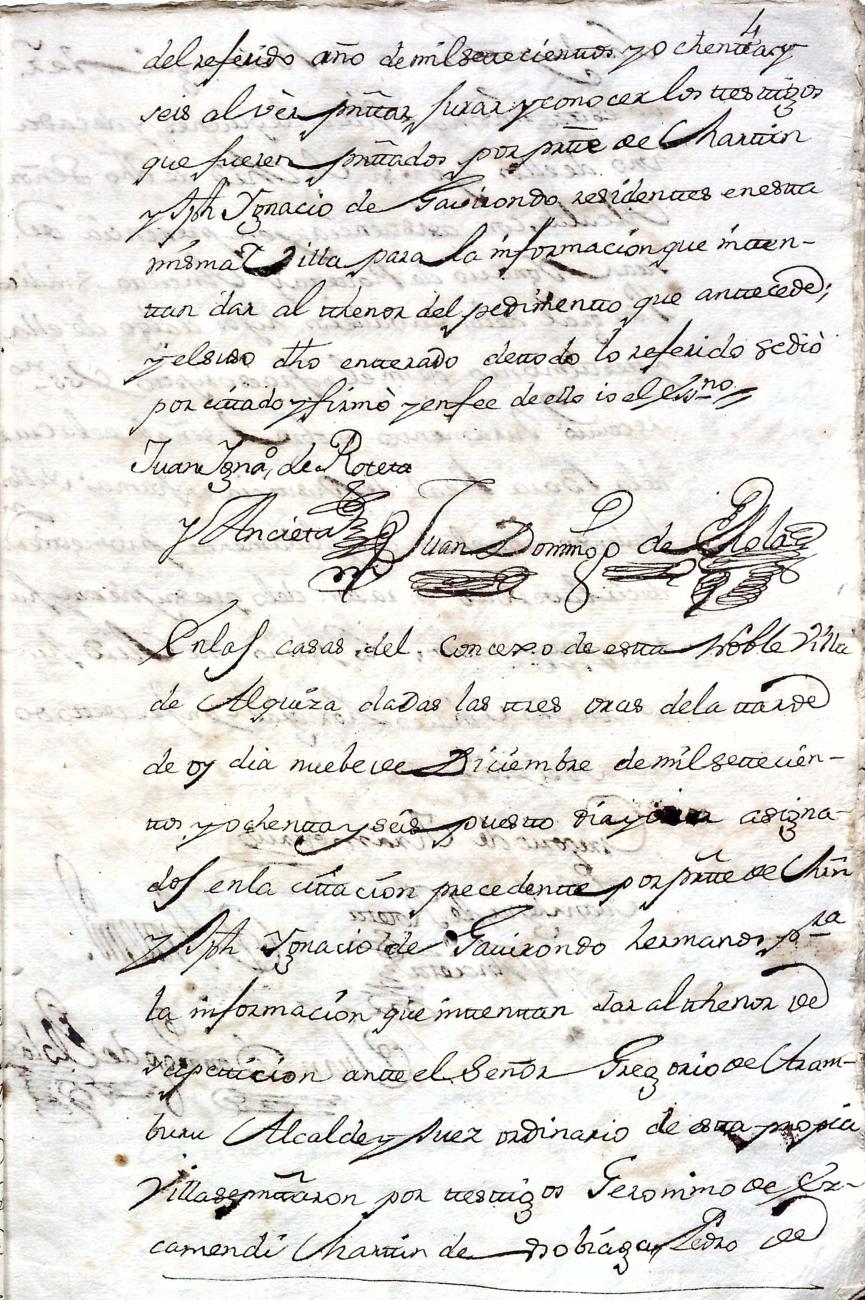 4
del referido año de mil settecientos y ochentta y
seis al vèr pnttar, jurar, y conocer los ttesttigos
que fueren pnttados por prtte de Marttin
y Jph Ygnacio de Gavirondo residenttes en estta
misma Villa para la información que intten-
ttan dar al tthenor del pedimentto que anttecede;
y el suso dho entterado de ttodo lo referido se diò
por cittado y firmò y en fee de ello io el Essno
Juan Ygnaº, de Roteta
y Ancieta Juan Domingo de
En las casas del Concexo de estta Noble Villa
de Alquiza dadas las ttres oras de la ttarde
de oy dia nuebe de Diciembre de mil settecien-
ttos y ochentta y seis puestto día y asigna-
dos en la cittación precedentte por prtte de Mrn
y Jph Ygnacio de Gavirondo hermanos pra
la información que inttentan dar al tthenor de
su pettición antte el Señor Gregorio de Aram-
buru Alcalde y Juez ordinario de estta propia
Villa se pnttaron por ttesttigos Geronimo de Ex-
camendi Marttin de Pedro de